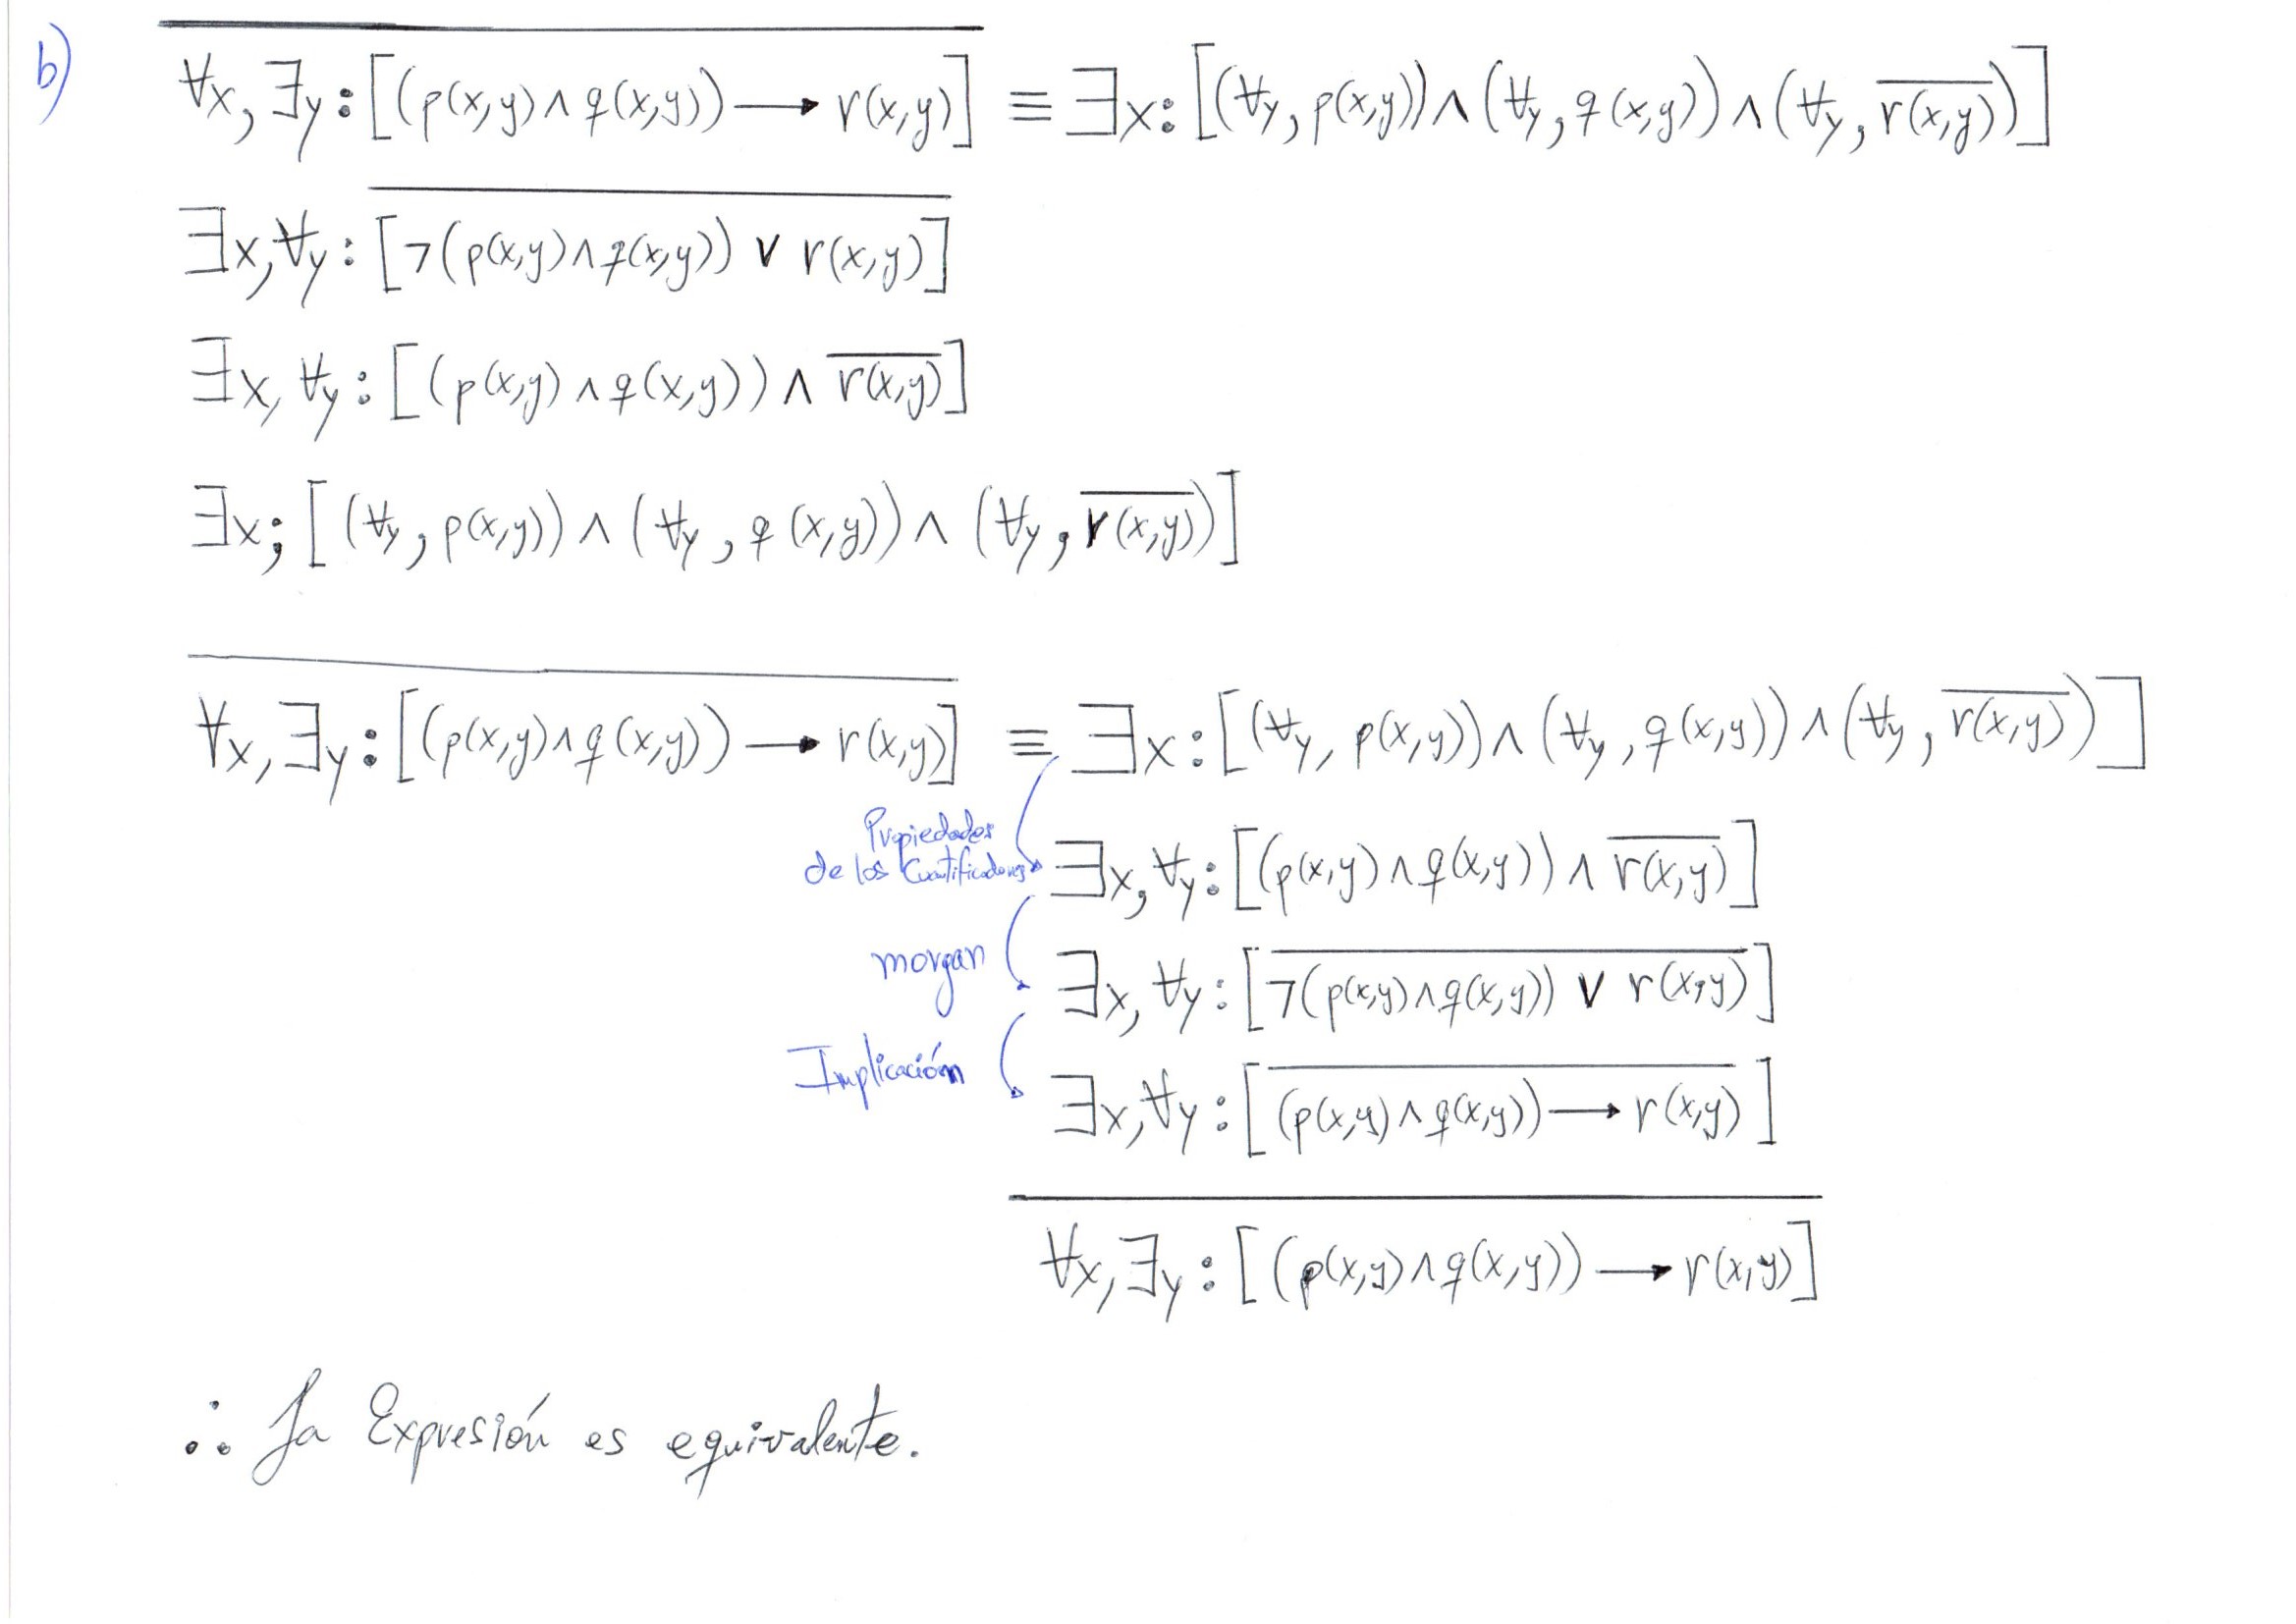 b) $\overline{\forall x, \exists y : [(p(x,y) \land q(x,y)) \longrightarrow r(x,y)]} \equiv \exists x : [(\forall y, p(x,y)) \land (\forall y, q(x,y)) \land (\forall y, \overline{r(x,y)})]$
$\exists x, \forall y : \overline{[\neg(p(x,y) \land q(x,y)) \lor r(x,y)]}$
$\exists x, \forall y : [(p(x,y) \land q(x,y)) \land \overline{r(x,y)}]$
$\exists x ; [(\forall y, p(x,y)) \land (\forall y, q(x,y)) \land (\forall y, \overline{r(x,y)})]$
$\overline{\forall x, \exists y : [(p(x,y) \land q(x,y)) \longrightarrow r(x,y)]} \equiv \exists x : [(\forall y, p(x,y)) \land (\forall y, q(x,y)) \land (\forall y, \overline{r(x,y)})]$
Propiedades
de los Cuantificadores $\exists x, \forall y : [(p(x,y) \land q(x,y)) \land \overline{r(x,y)}]$
morgan $\exists x, \forall y : [\overline{\neg(p(x,y) \land q(x,y)) \lor r(x,y)}]$
Implicación $\exists x, \forall y : [\overline{(p(x,y) \land q(x,y)) \longrightarrow r(x,y)}]$
$\overline{\forall x, \exists y : [(p(x,y) \land q(x,y)) \longrightarrow r(x,y)]}$
∴ La Expresión es equivalente.